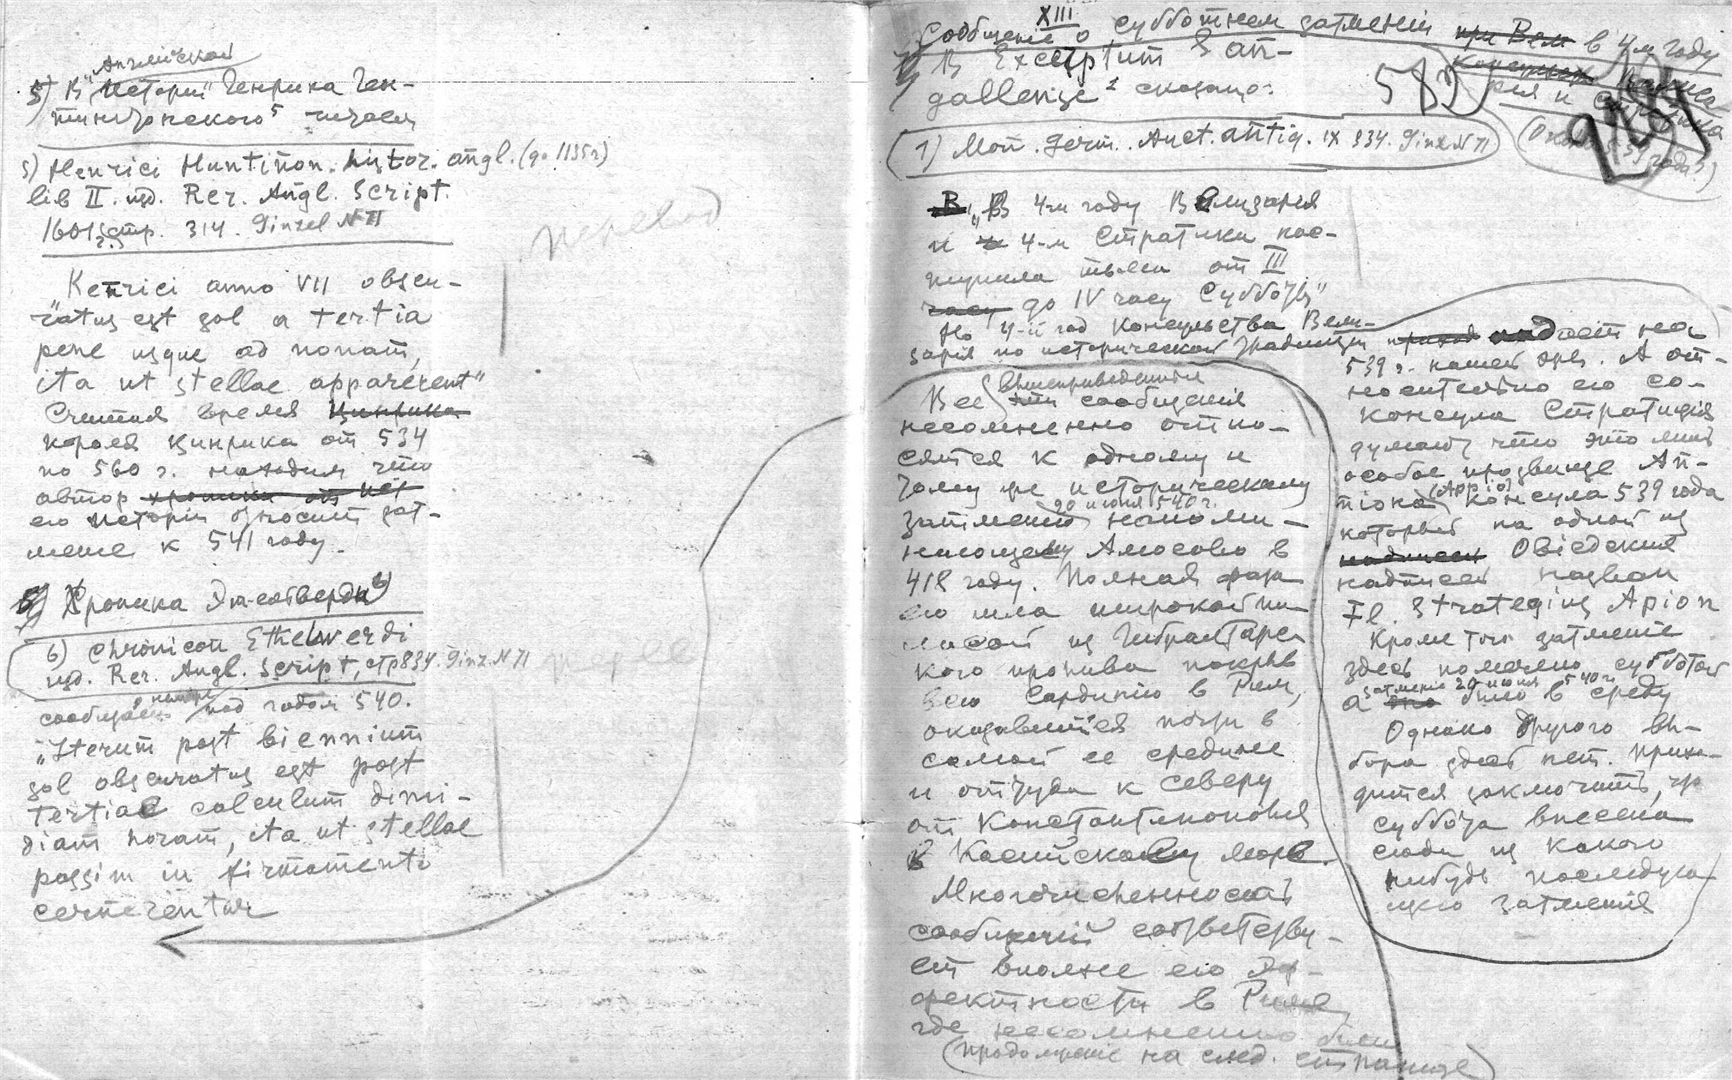 Английской
5) В "Истории" Генриха Ген-
тингтонского⁵ читаем
5) Henrici Huntiñon. histor. angl. (до 1135 г)
lib II. изд. Rer. Angl. Script.
1601 стр. 314. Ginzel N 71
"Kenrici anno VII obscu-
ratus est sol a tertia
pene usque ad nonam,
ita ut stellae apparerent"
Считая время Цинрика
короля Цинрика от 534
по 560 г. находим что
автор хроники от нея
его Истории относит зат-
мение к 541 году.
Хроника Этельверди⁶)
6) Chronicon Ethelwerdi
изд. Rer. Angl. Script, стр 834. Ginz. N 71
сообщает под годом 540.
"Iterum post biennium
sol obscuratus est post
tertiae calculum dimi-
diam horam, ita ut stellae
passim in firmamento
cernerentur
перевод
XIII
Сообщение о субботнем затмении при Вел в 4-м году
В Excerptum San-
gallense¹ сказано:
582
1) Mon. Germ. Auct. antiq. IX 334. Ginz N 71
(Около 539 года?)
В "В 4-м году Велизария
и 4-м Стратика нас-
тупила тьма от III
часу до IV часу Субботы"
Но 4-й год консульства Вели-
зария по исторической традиции приход падает на
539 г. нашей эры. А от-
носительно его со-
консула Стратиция
думают что это лишь
особое прозвище Ап-
пиона (Appio) консула 539 года
который на одной из
надписей Овіедских
надписей назван
Fl. Strategius Apion
Кроме того затмение
здесь помечено субботой
затмение 20 июня 540 г.
а оно было в среду
Однако другого вы-
бора здесь нет. Прихо-
дится заключить, что
суббота внесена
сюда из какого
нибудь последую-
щего затмения
вышеприведенные
Все эти сообщения
несомненно отно-
сятся к одному и
тому же историческому
20 июня 540 г.
затмению напоми-
нающему Амосово в
418 году. Полная фаза
его шла широкой по-
лосой из Гибралтарс-
кого пролива покрыв
всю Сардинию в Рим,
оказавшийся почти в
самой ее средине
и оттуда к северу
от Константинополя
к Каспийскому морю.
Многочисленность
сообщений соответству-
ет вполне его эф-
фектности в Риме
где несомненно были
(продолжение на след. странице)